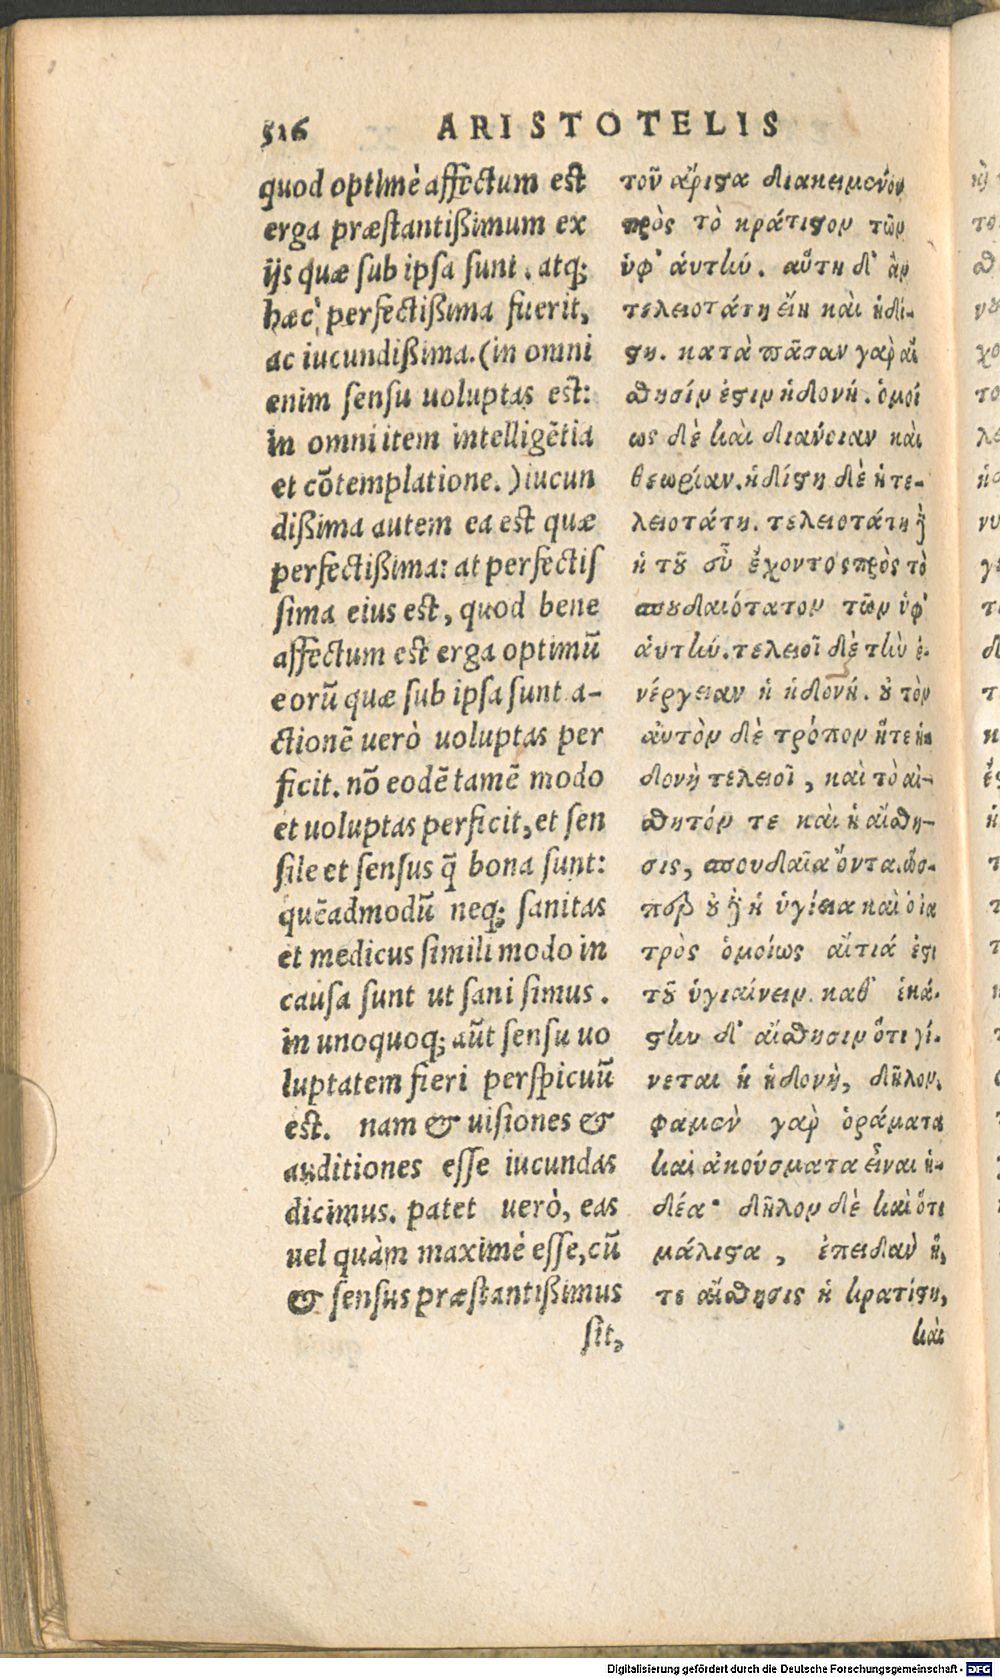 516 ARISTOTELIS
quod optimè affectum est
erga præstantißimum ex
ijs quæ sub ipsa sunt. atq;
hæc perfectißima fuerit,
ac iucundißima. (in omni
enim sensu uoluptas est:
in omni item intelligẽtia
et cõtemplatione.) iucun
dißima autem ea est quæ
perfectißima: at perfectis
sima eius est, quod bene
affectum est erga optimũ
eorũ quæ sub ipsa sunt a-
ctionẽ uerò uoluptas per
ficit. nõ eodẽ tamẽ modo
et uoluptas perficit, et sen
sile et sensus q̃ bona sunt:
quẽadmodũ neq; sanitas
et medicus simili modo in
causa sunt ut sani simus.
in unoquoq; aũt sensu uo
luptatem fieri perspicuũ
est. nam & uisiones &
auditiones esse iucundas
dicimus. patet uerò, eas
uel quàm maximè esse, cũ
& sensus præstantißimus
sit,
τοῦ ἄριστα διακειμένου
πρὸς τὸ κράτιστον τῶν
ὑφ' ἁυτὴν. αὕτη δ' ἂν
τελειοτάτη εἴη καὶ ἡδί-
στη. κατὰ πᾶσαν γὰρ αἴ
σθησίν ἐστιν ἡδονή. ὁμοί
ως δὲ καὶ διάνοιαν καὶ
θεωρίαν. ἡδίστη δὲ ἡ τε-
λειοτάτη. τελειοτάτη δὲ
ἡ τοῦ εὖ ἔχοντος πρὸς τὸ
σπουδαιότατον τῶν ὑφ'
ἁυτήν. τελειοῖ δὲ τὴν ἐ-
νέργειαν ἡ ἡδονή. οὐ τὸν
ἀυτὸν δὲ τρόπον ἥτε ἡ
δονὴ τελειοῖ, καὶ τὸ αἰ-
σθητόν τε καὶ ἡ αἴσθη-
σις, σπουδαῖα ὄντα. ὥσ-
περ οὐδὲ ἡ ὑγίεια καὶ ὁ ἰα
τρὸς ὁμοίως αἴτιά ἐστι
τοῦ ὑγιαίνειν. καθ' ἑκά-
στην δ' αἴσθησιν ὅτι γί-
νεται ἡ ἡδονὴ, δῆλον.
φαμὲν γὰρ ὁράματα
καὶ ἀκούσματα εἶναι ἡ-
δέα· δῆλον δὲ καὶ ὅτι
μάλιστα, ἐπειδὰν ἥ,
τε αἴσθησις ᾖ κρατίστη,
καὶ
Digitalisierung gefördert durch die Deutsche Forschungsgemeinschaft - DFG